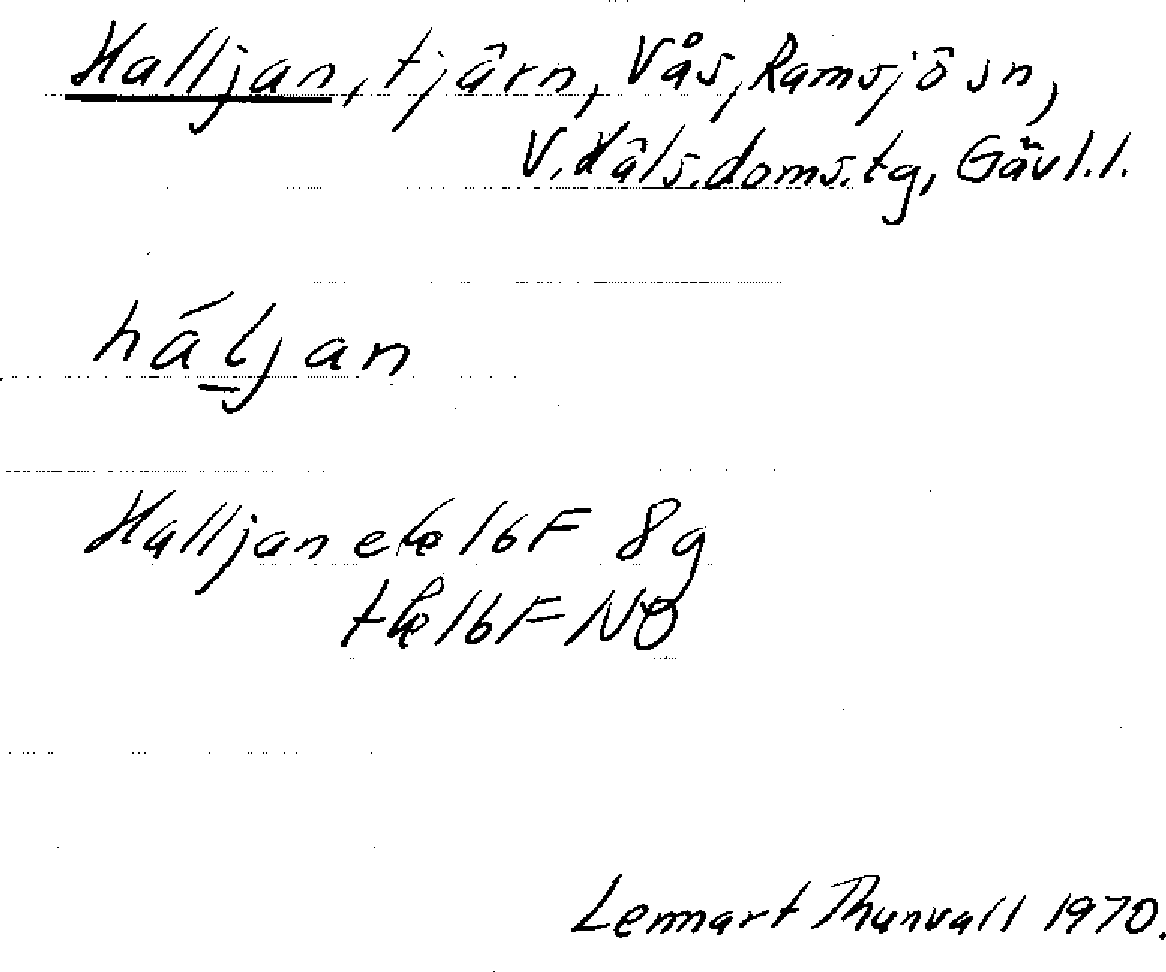 Halljan, tjärn, Vås, Ramsjö sn,
V. Häls. doms. tg, Gävl. l.
háḻjan
Halljan ek 16F 8g
tk 16F NO
Lennart Thunvall 1970.